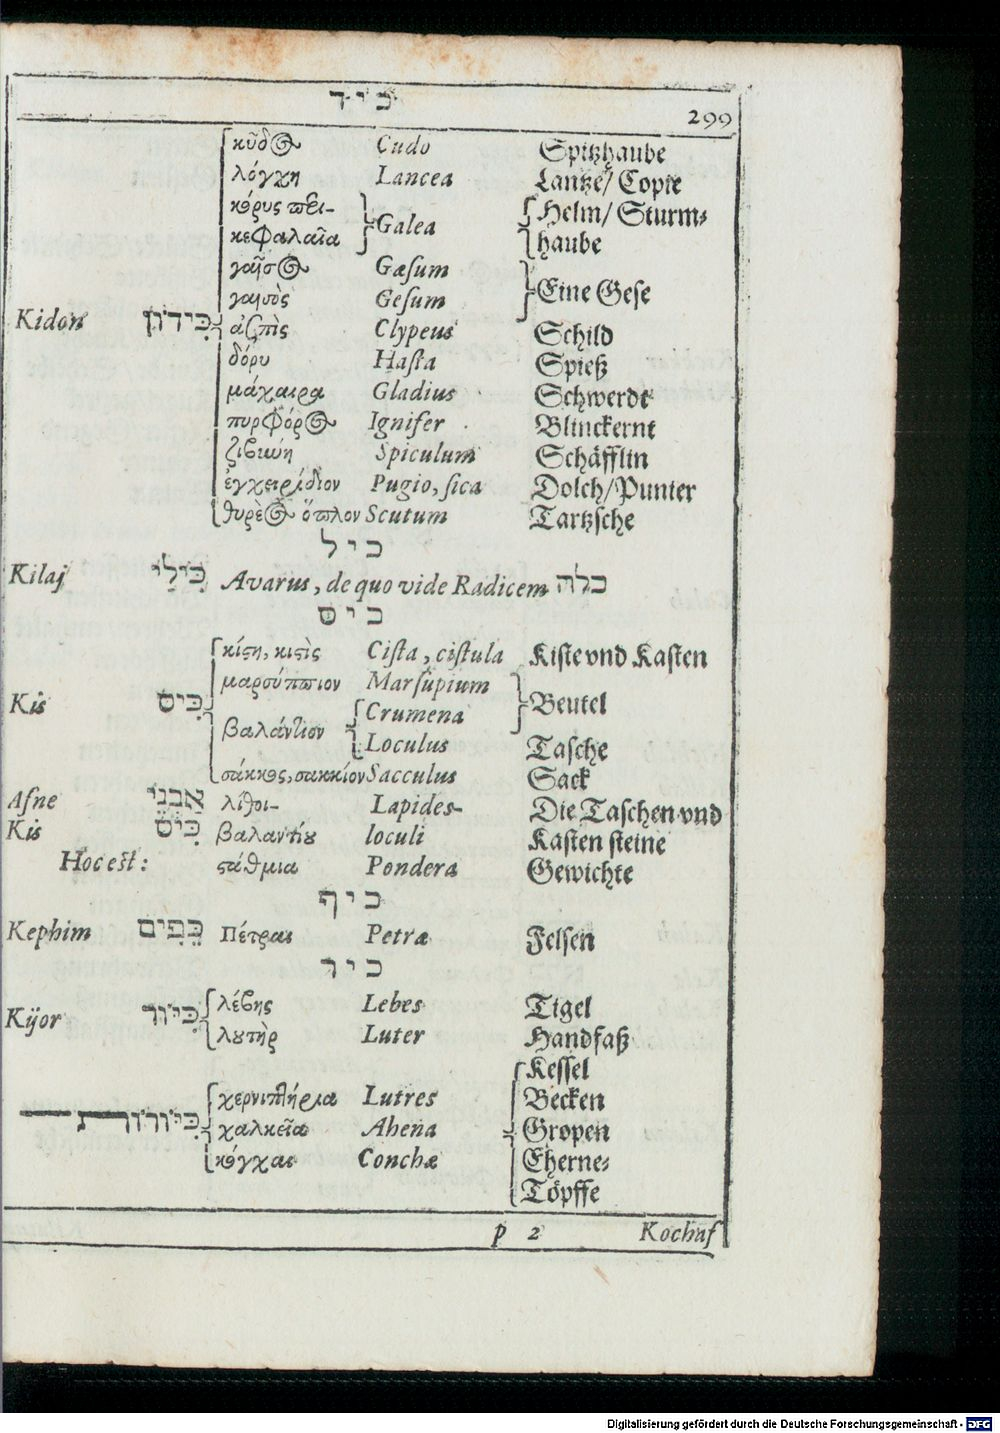 כיד
299
κῦδος Cudo Spitzhaube
λόγχη Lancea Lantze/ Copie
κόρυς πει- Galea Helm/ Sturm-
κεφαλαῖα haube
γαῖσος Gæsum Eine Gese
γαισὸς Gesum
Kidon כִּידוֹן ἀσπὶς Clypeus Schild
δόρυ Hasta Spieß
μάχαιρα Gladius Schwerdt
πυρφόρος Ignifer Blinckernt
ζιβύνη Spiculum Schäfflin
ἐγχειρίδιον Pugio, sica Dolch/Punter
θυρεὸς ὅπλον Scutum Tartzsche
כיל
Kilaj כִּילַי Avarus, de quo vide Radicem כלה
כיס
κίστη, κιστὶς Cista, cistula Kiste vnd Kasten
μαρσύππιον Marsupium Beutel
Kis כִּיס βαλάντιον Crumena
Loculus Tasche
σάκκος, σακκίον Sacculus Sack
Afne אַבְנֵי λίθοι- Lapides- Die Taschen vnd
Kis כִּיס βαλαντίου loculi Kasten steine
Hoc est: στάθμια Pondera Gewichte
כיף
Kephim כֵּפִים Πέτραι Petræ Felsen
כיר
Kijor כִּיּוֹר λέβης Lebes Tigel
λουτὴρ Luter Handfaß
Kessel
χερνιπτήρια Lutres Becken
כִּיּוֹרוֹת χαλκεῖα Ahena Gropen
κόγχαι Conchæ Eherne-
Töpffe
p 2 Kochaf
Digitalisierung gefördert durch die Deutsche Forschungsgemeinschaft - DFG